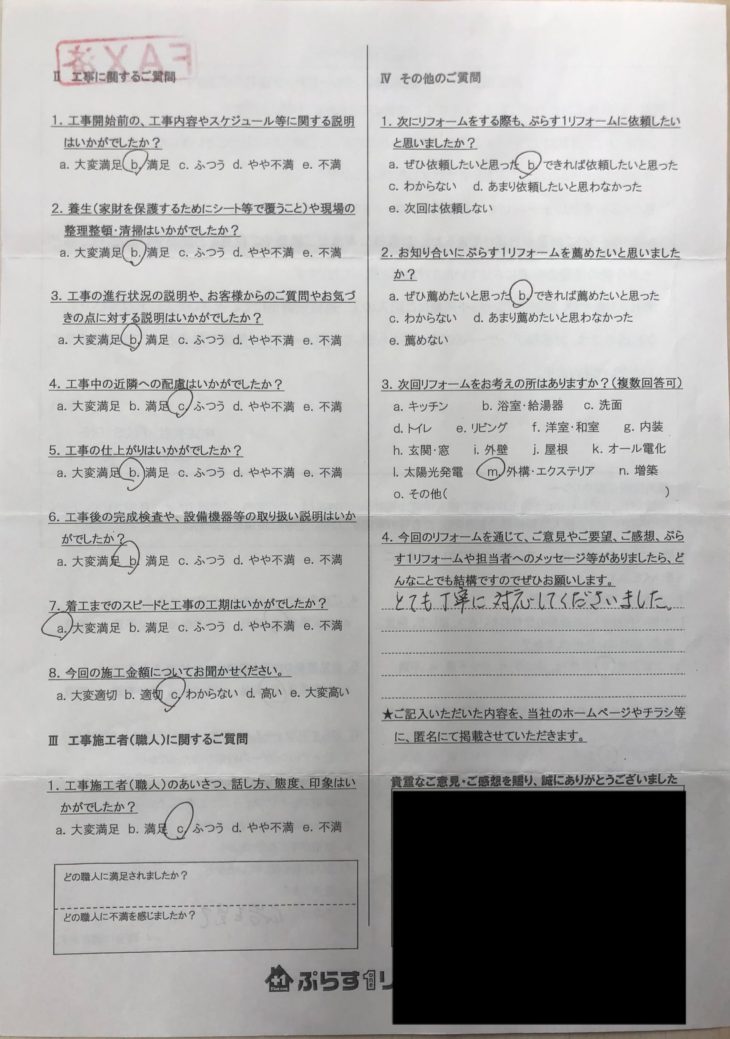 FAX済
Ⅱ 工事に関するご質問
1. 工事開始前の、工事内容やスケジュール等に関する説明
はいかがでしたか？
a. 大変満足 b. 満足 c. ふつう d. やや不満 e. 不満
2. 養生(家財を保護するためにシート等で覆うこと)や現場の
整理整頓・清掃はいかがでしたか？
a. 大変満足 b. 満足 c. ふつう d. やや不満 e. 不満
3. 工事の進行状況の説明や、お客様からのご質問やお気づ
きの点に対する説明はいかがでしたか？
a. 大変満足 b. 満足 c. ふつう d. やや不満 e. 不満
4. 工事中の近隣への配慮はいかがでしたか？
a. 大変満足 b. 満足 c. ふつう d. やや不満 e. 不満
5. 工事の仕上がりはいかがでしたか？
a. 大変満足 b. 満足 c. ふつう d. やや不満 e. 不満
6. 工事後の完成検査や、設備機器等の取り扱い説明はいか
がでしたか？
a. 大変満足 b. 満足 c. ふつう d. やや不満 e. 不満
7. 着工までのスピードと工事の工期はいかがでしたか？
a. 大変満足 b. 満足 c. ふつう d. やや不満 e. 不満
8. 今回の施工金額についてお聞かせください。
a. 大変適切 b. 適切 c. わからない d. 高い e. 大変高い
Ⅲ 工事施工者(職人)に関するご質問
1. 工事施工者(職人)のあいさつ、話し方、態度、印象はい
かがでしたか？
a. 大変満足 b. 満足 c. ふつう d. やや不満 e. 不満
どの職人に満足されましたか？
どの職人に不満を感じましたか？
Ⅳ その他のご質問
1. 次にリフォームをする際も、ぷらす1リフォームに依頼したい
と思いましたか？
a. ぜひ依頼したいと思った b. できれば依頼したいと思った
c. わからない d. あまり依頼したいと思わなかった
e. 次回は依頼しない
2. お知り合いにぷらす1リフォームを薦めたいと思いました
か？
a. ぜひ薦めたいと思った b. できれば薦めたいと思った
c. わからない d. あまり薦めたいと思わなかった
e. 薦めない
3. 次回リフォームをお考えの所はありますか？(複数回答可)
a. キッチン b. 浴室・給湯器 c. 洗面
d. トイレ e. リビング f. 洋室・和室 g. 内装
h. 玄関・窓 i. 外壁 j. 屋根 k. オール電化
l. 太陽光発電 m. 外構・エクステリア n. 増築
o. その他( )
4. 今回のリフォームを通じて、ご意見やご要望、ご感想、ぷら
す1リフォームや担当者へのメッセージ等がありましたら、ど
んなことでも結構ですのでぜひお願いします。
とても丁寧に対応してくださいました。
★ご記入いただいた内容を、当社のホームページやチラシ等
に、匿名にて掲載させていただきます。
貴重なご意見・ご感想を賜り、誠にありがとうございました
+1 ぷらす1リ